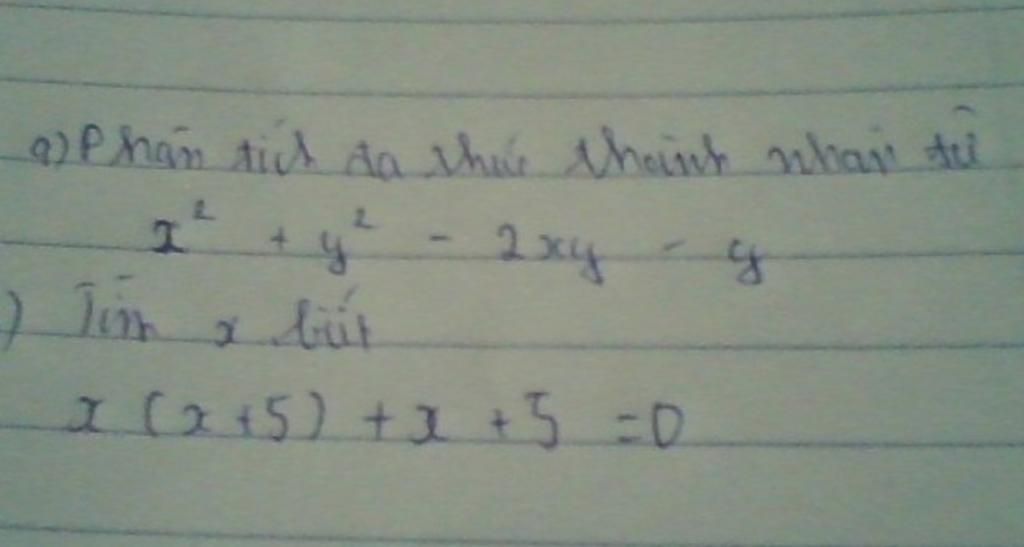 a) Phân tích đa thức thành nhân tử
x² + y² - 2xy - y
) Tìm x biết
x (x+5) + x + 5 = 0